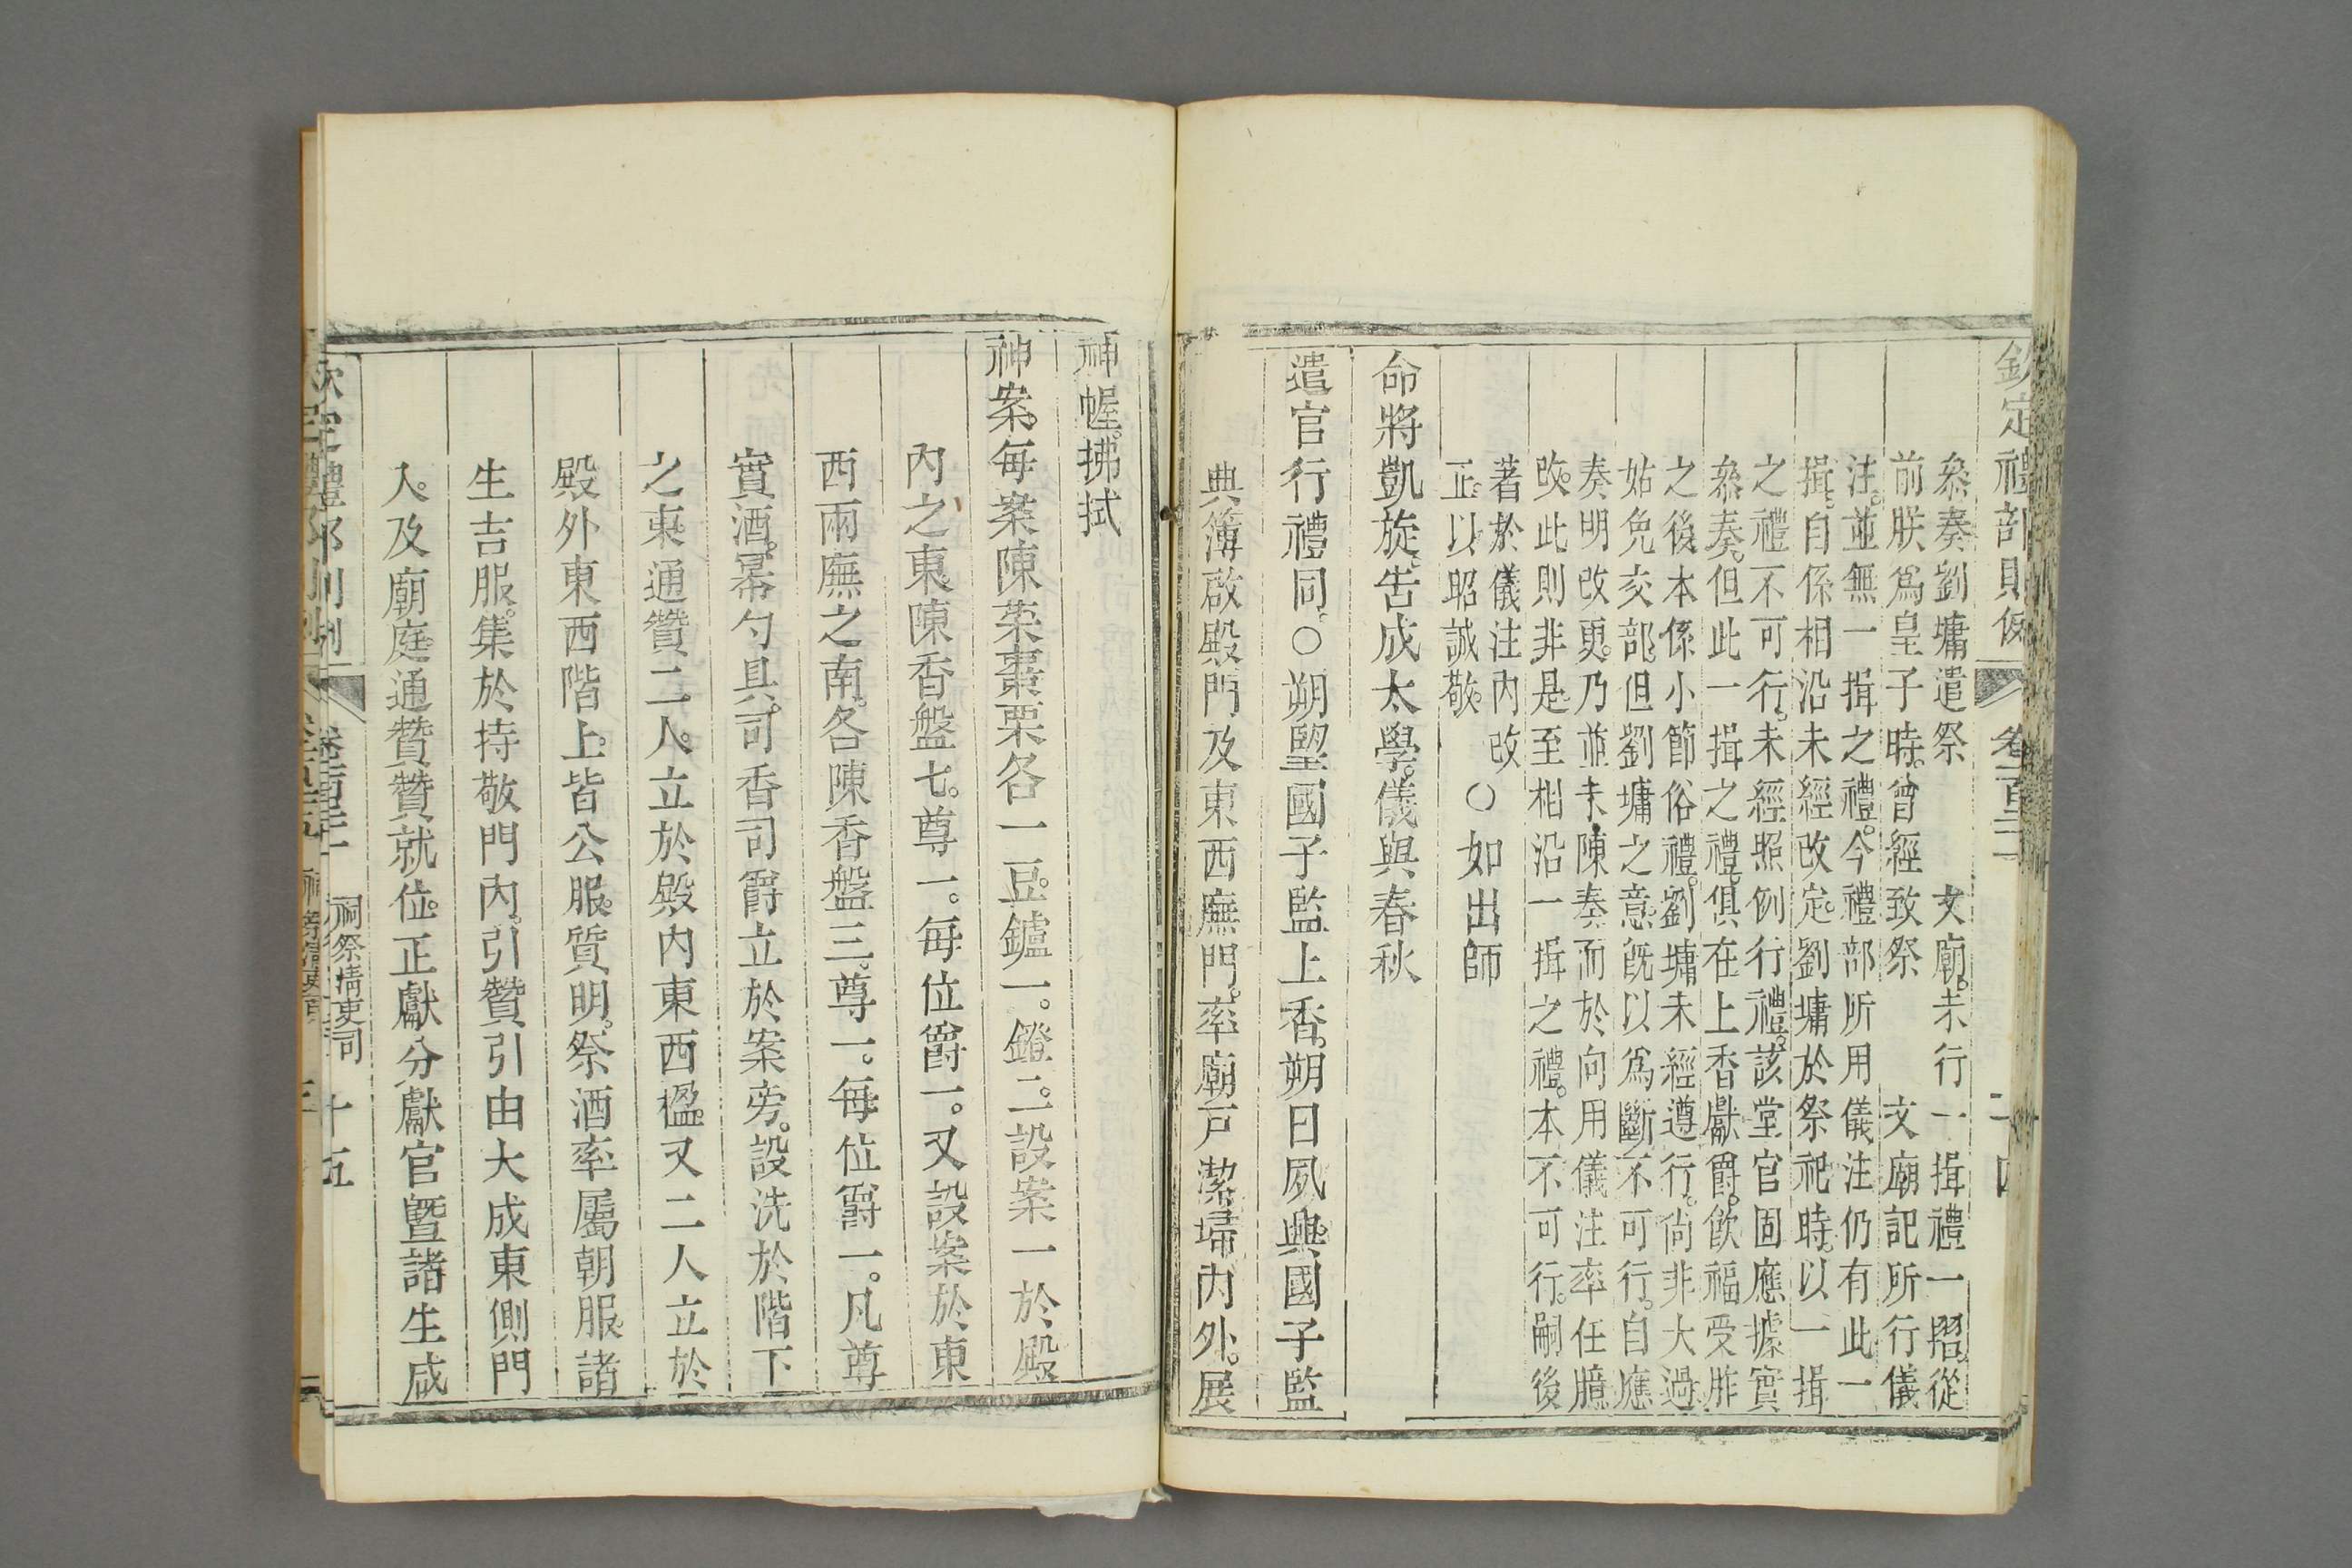 欽定禮部則例
卷一百三十
二十四
叅奏劉墉遣祭　文廟。未行一揖禮一摺。從
前朕爲皇子時。曾經致祭　文廟記所行儀
注。並無一揖之禮。今禮部所用儀注仍有此一
揖。自係相沿未經改定。劉墉於祭祀時。以一揖
之禮不可行。未經照例行禮。該堂官固應據實
叅奏。但此一揖之禮。俱在上香獻爵。飲福受胙
之後本係小節俗禮。劉墉未經遵行。尚非大過
姑免交部。但劉墉之意。旣以爲斷不可行。自應
奏明改更。乃並未陳奏而於向用儀注率任臆
改。此則非是。至相沿一揖之禮。本不可行。嗣後
著於儀注內改
正。以昭誠敬。
○如出師
命將凱旋。告成太學。儀與春秋
遣官行禮同。○朔望國子監上香。朔日夙興。國子監
典簿啟殿門及東西廡門。率廟戸潔埽內外。展
神幄。拂拭
神案。每案陳菜棗栗各一豆。鑪一。鐙二。設案一於殿
內之東。陳香盤七。尊一。每位爵一。又設案於東
西兩廡之南。各陳香盤三。尊一。每位爵一。凡尊
實酒。冪勺具。司香司爵立於案旁。設洗於階下
之東。通贊二人。立於殿內東西楹。又二人立於
殿外東西階上。皆公服。質明。祭酒率屬朝服。諸
生吉服。集於持敬門內。引贊引由大成東側門
入。及廟庭。通贊贊就位。正獻分獻官曁諸生咸
欽定禮部則例
卷一百三十
祠祭淸吏司
十五